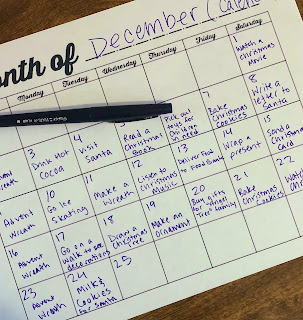 onth of December (Calen
Monday Tuesday Wednesday Thursday Friday Saturday
Watch a
Christmas
Movie
vent
Wreath
3
Drink Hot
Cocoa
4
Visit
Santa
Read a
Christmas
Book
Pick out
toys for
Children
in need
7
Bake
Christmas
Cookies
8
Write a
letter to
Santa
Advent
Wreath
10
Go Ice
Skating
11
Make a
Wreath
12
Listen to
Christmas
Music
13
Deliver Food
to Food Bank
14
Wrap a
present
15
Send a
Christmas
Card
16
Advent
Wreath
17
Go on a
walk to see
decorations
18
Draw a
Christmas
Tree
19
Make an
Ornament
20
Buy gifts
for angel
Tree family
21
Bake
Christmas
Cookies
22
Watch
23
Advent
Wreath
24
Milk &
Cookies
for Santa
25